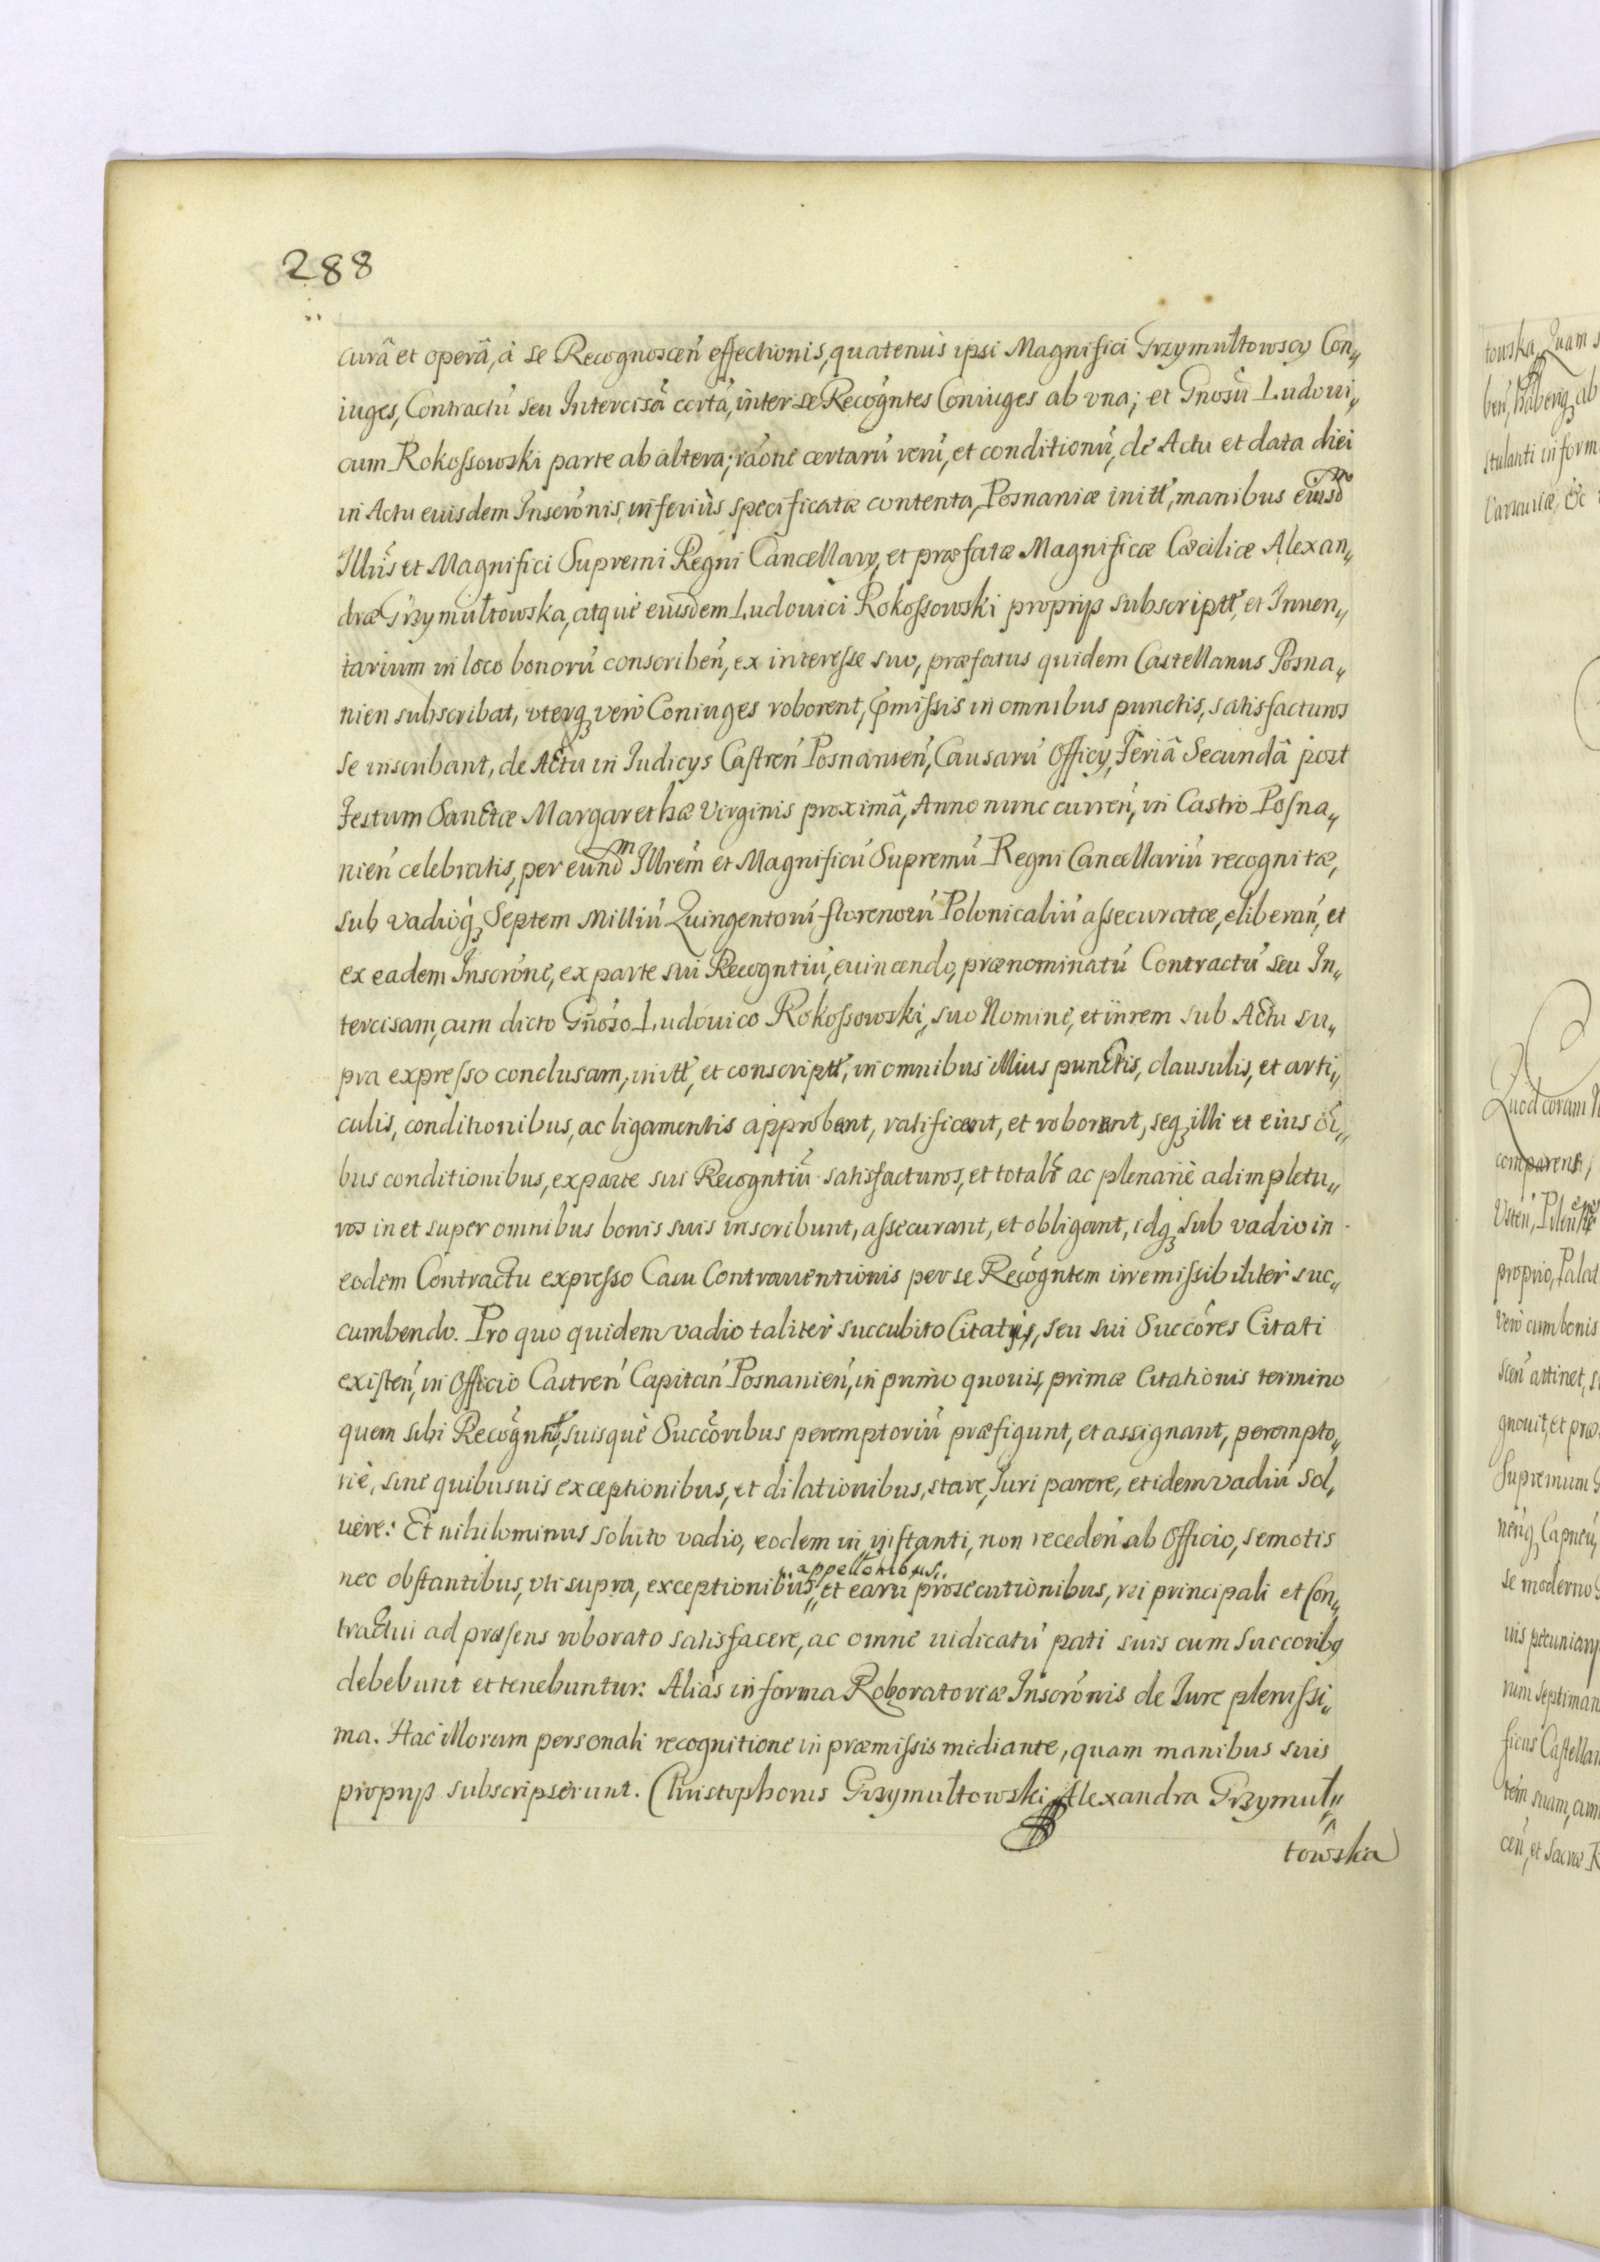 288
curâ et operâ, à se Recognoscen̄ effectionis, quatenus ipsi Magnifici Grzymułtowscy Con„
iuges, Contractū seu Intercisā certā, inter se Recogn̄tes Coniuges ab vna; et Gnosū Ludoui„
cum Rokoſsowski parte ab altera; rāone certarū rerū, et conditionū, de Actu et data diei
in Actu euisdem Inscrōnis, inferiùs specificatæ contenta, Posnaniæ initt, manibus eiusdᵐ
Illūs et Magnifici Supremi Regni Cancellarÿ, et præfatæ Magnificæ Cæciliæ Alexan„
dræ Grzymułtowska, atque eiusdem Ludouici Rokoſsowski proprijs subscriptt, et Inuen„
tarium in loco bonorū conscriben̄, ex intereſse suo, præfatus quidem Castellanus Posna„
nien subscribat, vterqꝫ verò Coniuges roborent, pmiſsis in omnibus punctis, satisfacturos
se inscribant, de Actu in Iudicÿs Caſtren̄ Posnanien̄, Causarū Officÿ, Feriâ Secundâ post
Festum Sanctæ Margarethæ Virginis proximâ, Anno nunc curren̄, in Castro Poſna„
nien̄ celebratis, per eundᵐ Illrem̄ et Magnificū Supremū Regni Cancellariū recognitæ,
sub vadioqꝫ Septem Milliū Quingentorū florenorū Polonicaliū aſsecuratæ, eliberan̄, et
ex eadem Inscrōne, ex parte sui Recogntiū, euincendo, prænominatū Contractū seu In„
tercisam, cum dicto Gn̄oso Ludouico Rokoſsowski, suo Nomine, et in rem sub Actu su„
pra expreſso conclusam, initt, et conscriptt, in omnibus illius punctis, clausulis, et arti„
culis, conditionibus, ac ligamentis approbant, ratificant, et roborant, seqꝫ illi et eius oī„
bus conditionibus, ex parte sui Recogntiū satisfacturos, et totalr̄ ac plenariè adimpletu„
ros in et super omnibus bonis suis inscribunt, aſsecurant, et obligant, idqꝫ sub vadio in
eodem Contractu expreſso Casu Contrauentionis per se Recogn̄tem irremiſsibiliter suc„
cumbendo. Pro quo quidem vadio taliter succubito Citatijs, seu sui Succōres Citati
exiſten̄, in Officio Castren̄ Capitan̄ Posnanien̄, in primo quouis, primæ Citationis termino
quem sibi Recogn̄tt, suisquè Succōribus peremptoriū præfigunt, et assignant, perempto„
riè, sine quibusuis exceptionibus, et dilationibus, stare, Iuri parere, et idem vadiū sol„
uere: Et nihilominus soluto vadio, eodem in inſtanti, non receden̄ ab Officio, semotis
nec obſtantibus, vti supra, exceptionibus, „appelltōnibus„ et earū prosecutionibus, rei principali et Con„
tractui ad præſens roborato satisfacere, ac omne iudicatū pati suis cum Succoribꝫ
debebunt et tenebuntur. Aliàs in forma Roboratoriæ Inscrōnis de Iure pleniſsi„
ma. Hac illorum personali recognitione in præmiſsis mediante, quam manibus suis
proprijs subscripserunt. Christophorus Grzymułtowski, Alexandra Grzymuł„
towska